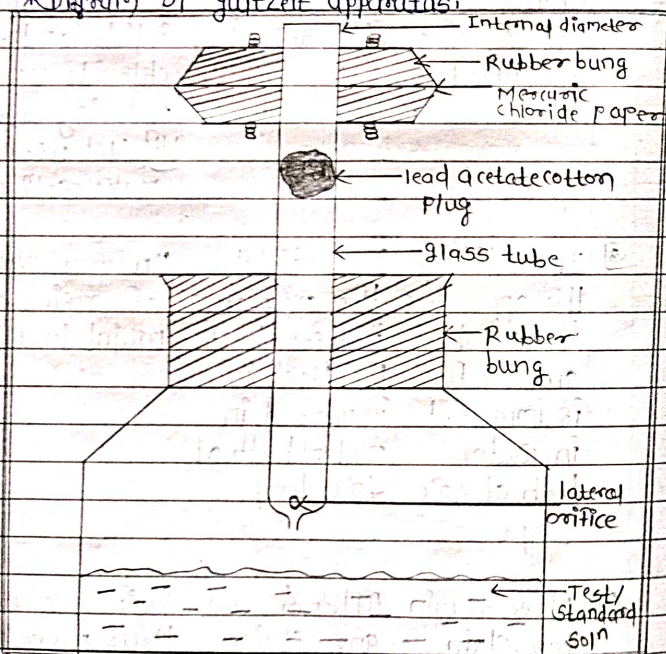 Diagram of gutzeit apparatus.
Internal diameter
Rubber bung
Mercuric
chloride paper
lead acetate cotton
plug
glass tube
Rubber
bung
lateral
orifice
Test/
standard
solⁿ